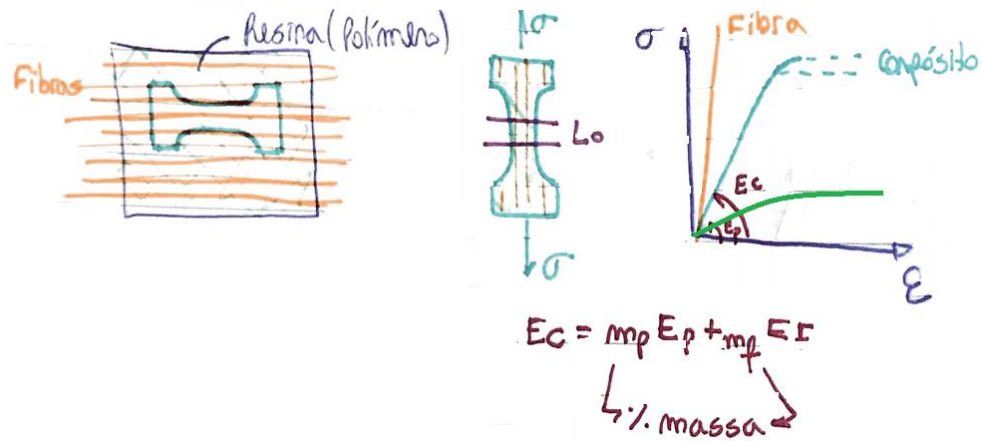 Resina (Polímero)
Fibras
σ
Lo
σ
σ
Fibra
Compósito
Ec
Ep
ε
Ec = mp Ep + mf EF
% massa